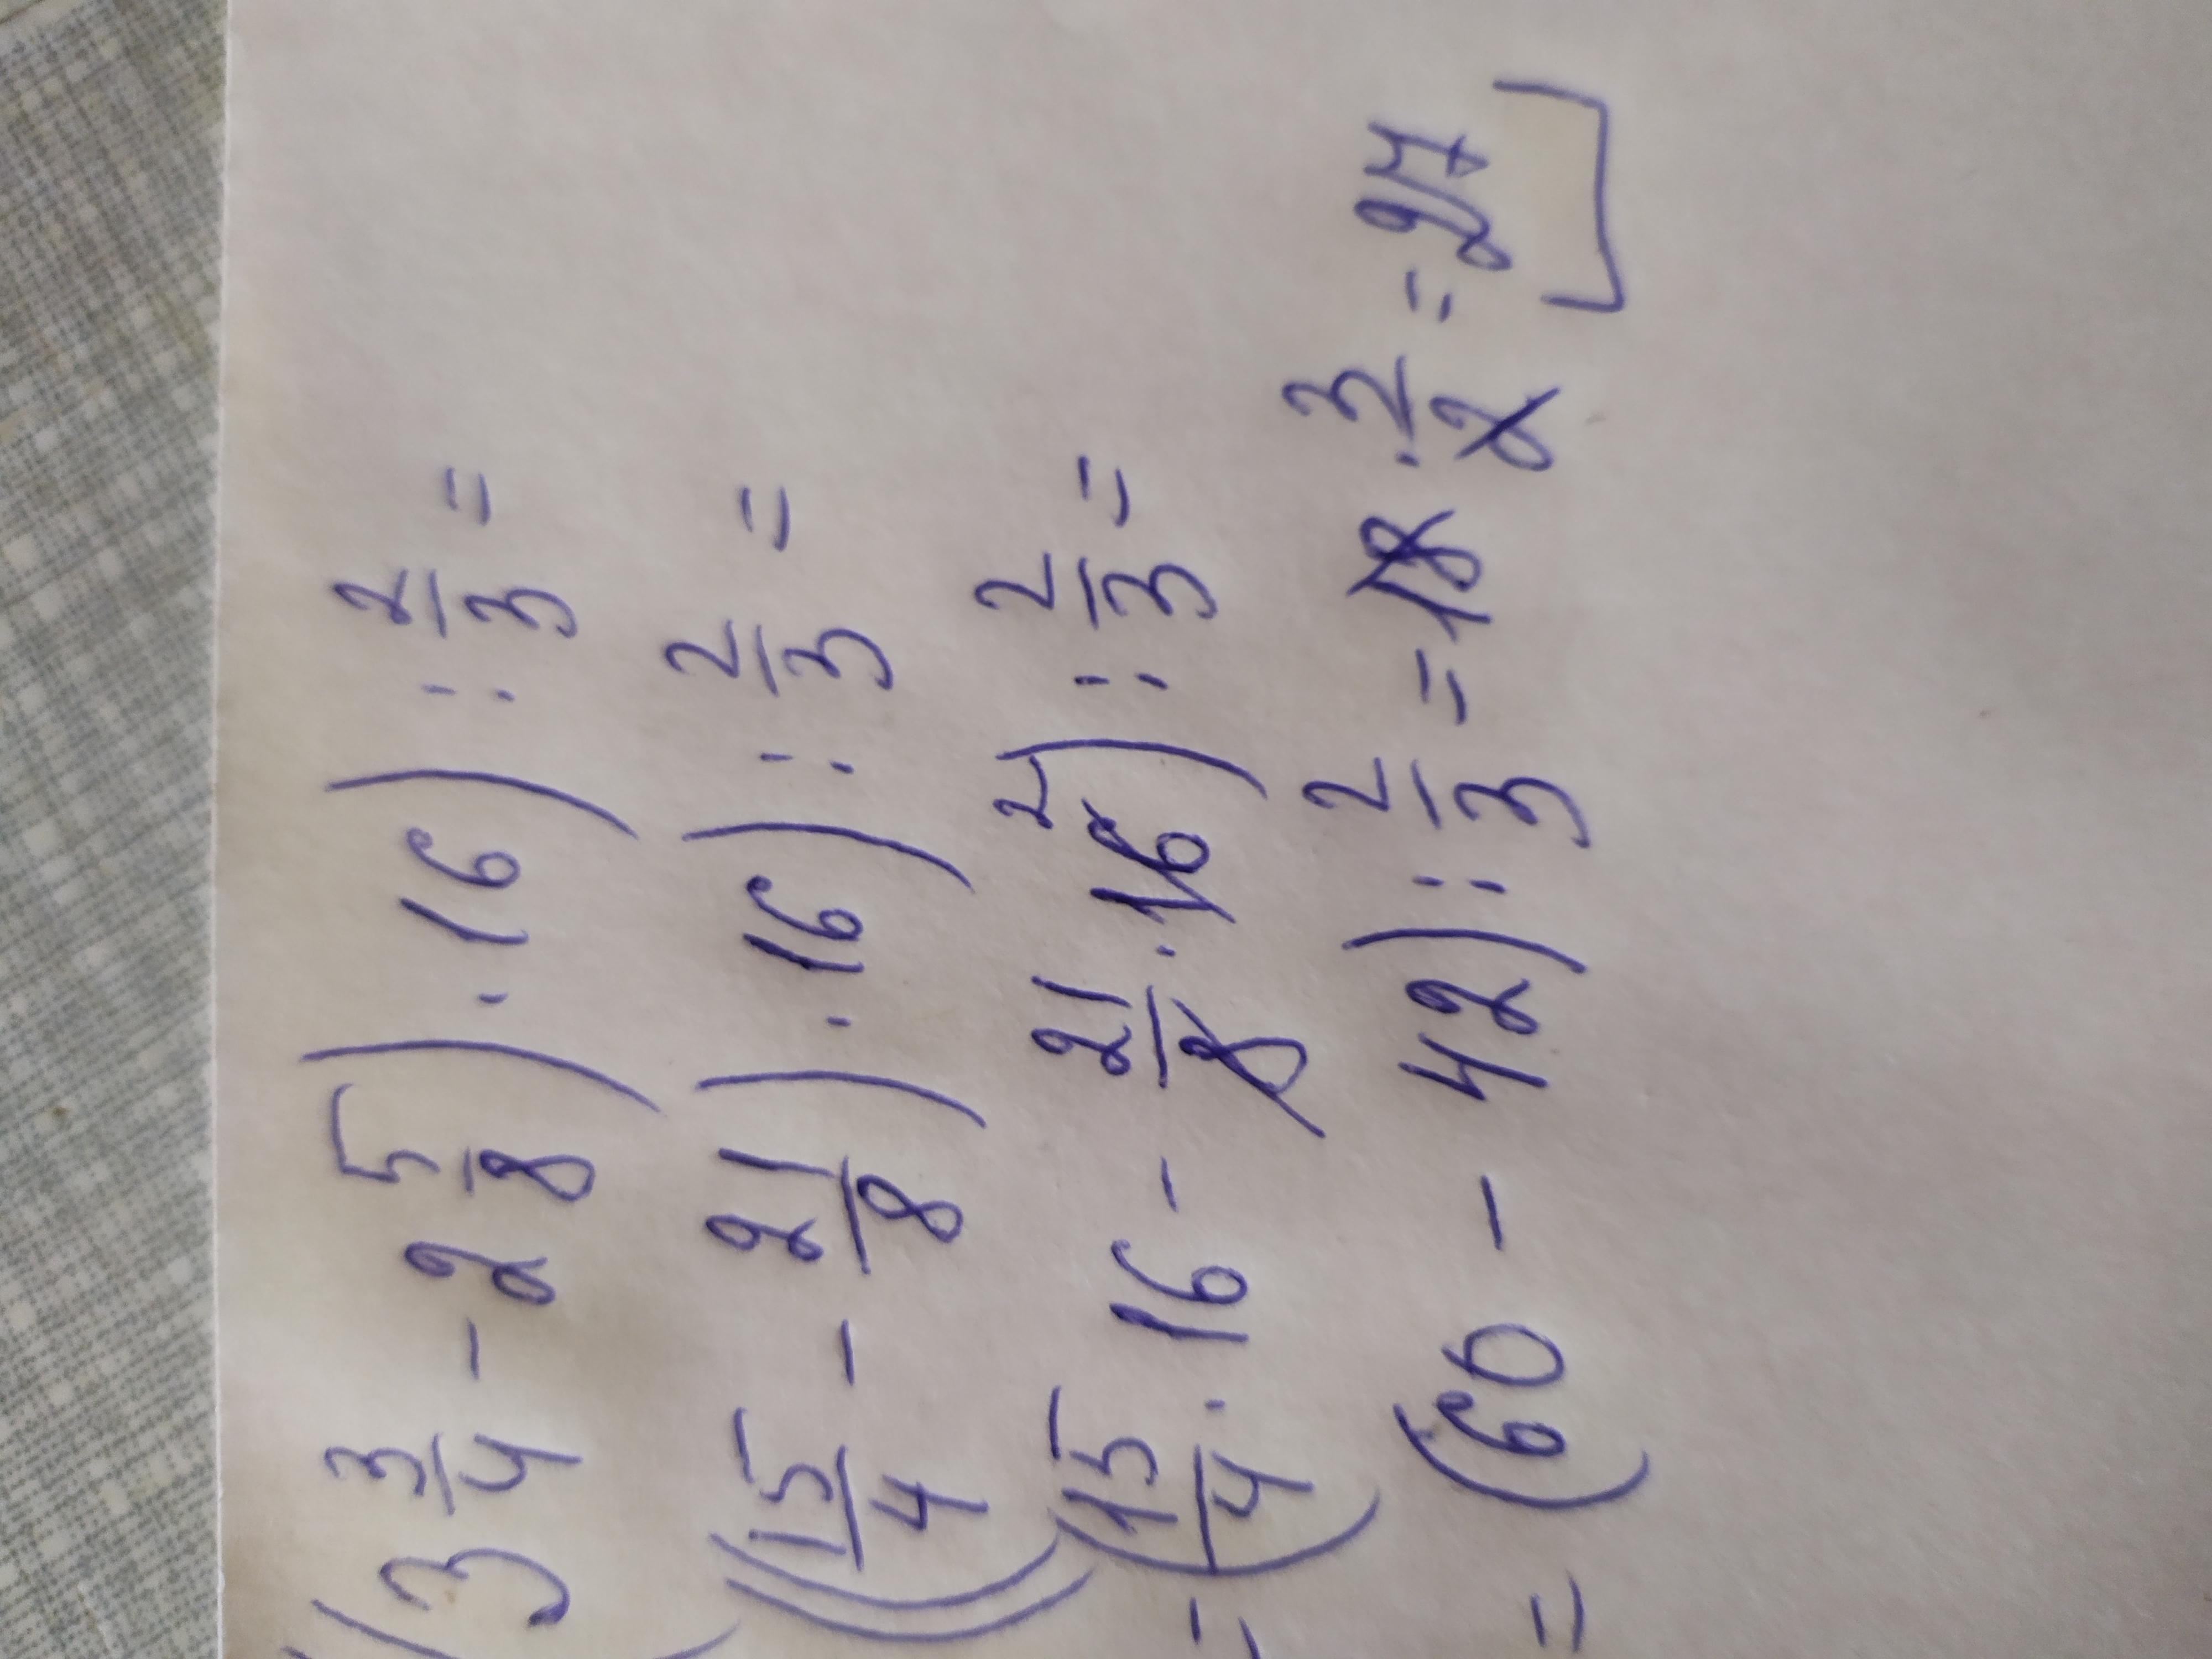 ((3 3/4 - 2 5/8) · 16) : 2/3 =
((15/4 - 21/8) · 16) : 2/3 =
= (15/4 · 16 - 21/8 · 16 2) : 2/3 =
= (60 - 42) : 2/3 = 18 · 3/2 = 27